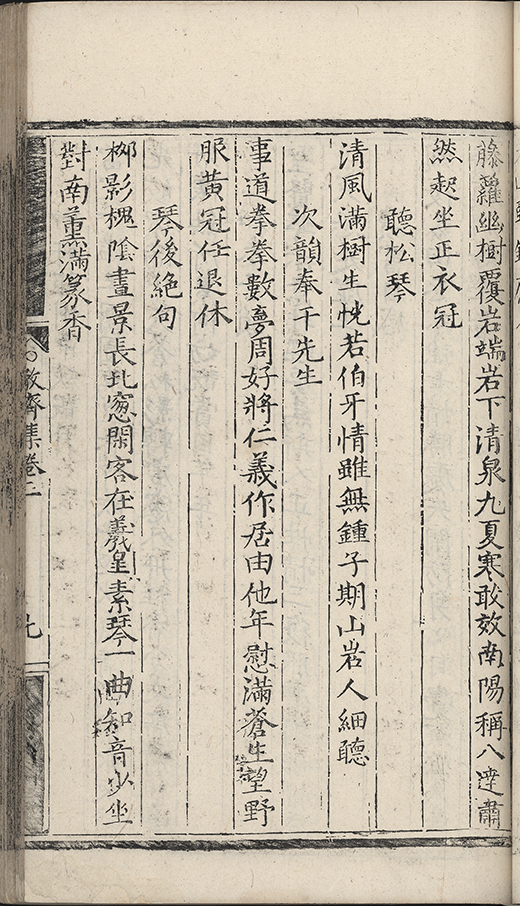 藤蘿幽樹覆岩端岩下清泉九夏寒敢效南陽稱八達肅
然起坐正衣冠
聽松琴
清風滿樹生恍若伯牙情雖無鍾子期山岩人細聽
次韻奉干先生
事道拳拳數夢周好將仁義作居由他年慰滿蒼生望野
服黃冠任退休
琴後絕句
栁影槐陰晝景長北窓閑客在羲皇素琴一曲知音少坐
對南薰滿篆香
齊集卷二
九